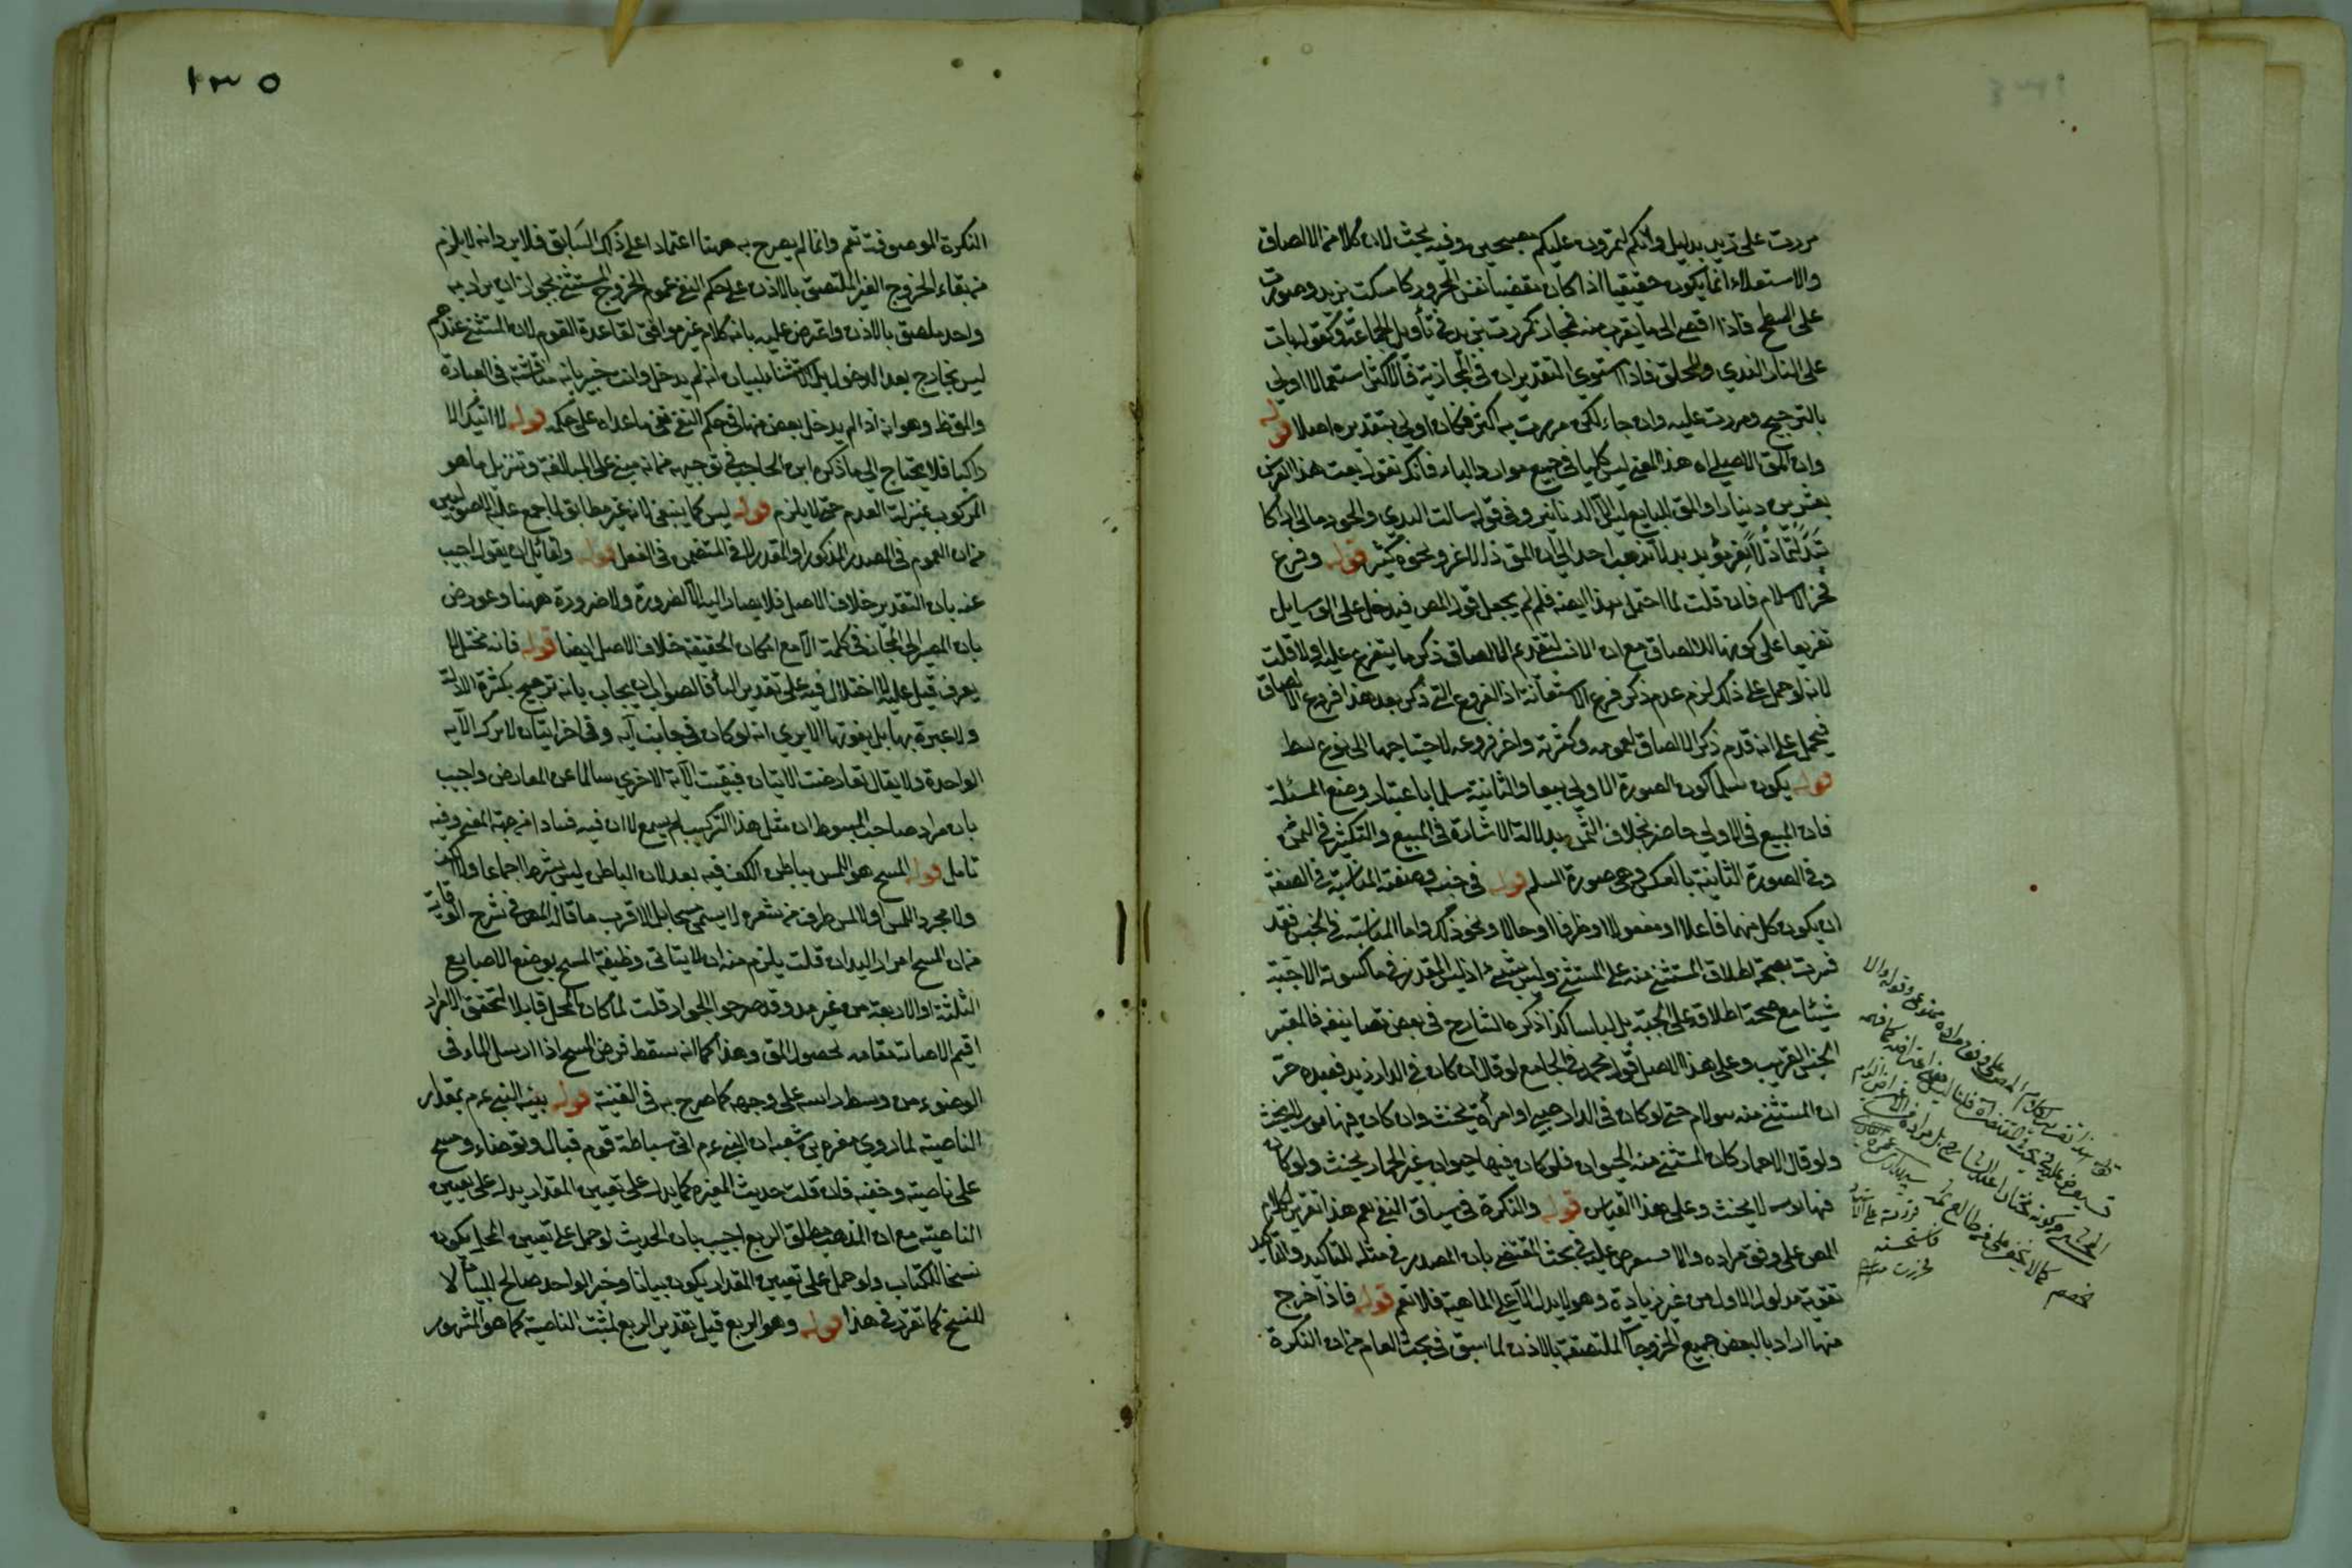 مررت على زيد بدليل وانكم لتمرون عليكم مصبحين وفيه بحث لان كلا من الالصاق
والاستعلاء انما يكون حقيقيا اذا كان مفضيا نفس المجرور كامسكت بزيد وصعدت
على السطح فاذا افضى الى ما يقرب منه فمجاز كمررت بزيد في تأويل الجماعة وكقوله بات
على النار الندى والمحلق فاذا استوى التقديران في المجازية فالاكثر استعمالا اولى
بالترجيح ومررت عليه وان جاء لكن مررت به اكثر فكان اولى بتقديره اصلا قوله
وان المق الاصلى اه هذا المعنى ليس كليا في جميع موارد الباء فانك تقول بعت هذا الفرس
بعشرين دينارا والمق للبايع ليس الا الدنانير وفي قوله سالت الندى والجود مالى اراكما
تبدلتما ذلا بعز مؤبد لا يذهب احد الى ان المق ذلا لا عز ونحوه كثير قوله وفرع
فخر الاسلام فان قلت لما احتمل هذا ايضا فلم لم يجعل قول المص فيدخل على الوسايل
تفريعا على كونها للالصاق مع ان الانسب لتقدم الالصاق ذكر ما يتفرع عليه اولا قلت
لانه لو حمل على ذلك لزم عدم ذكر فرع الاستعانة اذ الفروع التى ذكر بعد هذا فروع الالصاق
فيحمل على انه قدم ذكر الالصاق لعمومه وكثرته واخر فروعه لاحتياجها الى نوع بسط
قوله يكون سلما كون الصورة الاولى بيعا والثانية سلما باعتبار وضع المسئلة
فان المبيع في الاولى حاضر بخلاف الثمن بدلالة الاشارة في المبيع والتكثير في الثمن
وفي الصورة الثانية بالعكس وهى صورة السلم قوله في جنسه وصفته المناسبة في الصفة
ان يكون كل منهما فاعلا او مفعولا او ظرفا او حالا ونحو ذلك واما المناسبة في الجنس فقد
فسرت بصحة اطلاق المستثنى منه على المستثنى وليس بشئ اذ ليس المقدر في ما كسوته الا جبة
شيئا مع صحة اطلاقه على الجبة بل لباسا كذا ذكره الشارح في بعض تصانيفه فالمعتبر
الجنس القريب وعلى هذا الاصل قول محمد في الجامع لو قال ان كان في الدار زيد فعبده حر
ان المستثنى منه سوالم حتى لو كان في الدار صبي او امرأة يحنث وان كان فيها امور لا يحنث
ولو قال الا حمار كان المستثنى منه الحيوان فلو كان فيها حيوان غير الحمار يحنث ولو كان
فيها لا يحنث وعلى هذا القياس قوله والنكرة في سياق النفى تعم هذا تقرير لكلام
المص على وفق مراده والا فسيعرض عليه في بحث المقتضى بان المصدر في مثله للتأكيد والتأكيد
تقوية مدلول الاول من غير زيادة وهو لا يدل الا على الماهية فلا تعم قوله فاذا اخرج
منها اراد بالبعض جميع الخروجا الملتصقة بالاذن لما سبق في بحث العام من ان النكرة
قوله هذا تقرير لكلام المص على وفق مراده ممنوع وقوله والا
فاستحسنه
١٣٥
النكرة الموصوفة تعم وانما لم يصرح به ههنا اعتمادا على ذلك السابق فلا يرد انه لا يلزم
من بقاء الخروج الغير الملتصق بالاذن على حكم النفى عموم الخروج المستثنى بجواز ان يراد به
واحد ملصق بالاذن واعترض عليه بانه كلام غير موافق لقاعدة القوم لان المستثنى عندهم
ليس بخارج بعد الدخول بل الاستثناء لبيان انه لم يدخل وانت خبير بانه مناقشة في العبارة
والمق ظ وهو انه اذا لم يدخل بعض منها في حكم النفى بقى ما عداه على حكمه قوله لا اتيك الا
راكبا فلا يحتاج الى ما ذكره ابن الحاجب في توجيهه من انه مبنى على المبالغة وتنزيل ما هو
المركوب بمنزلة العدم حتى لا يلزم قوله ليس كما ينبغى لانه غير مطابق لما اجمع عليه الاصوليين
من ان العموم في المصدر المذكور او المقدر لا في المتضمن في الفعل قوله ولقائل ان يقول اجيب
عنه بان التقدير خلاف الاصل فلا يصار اليه الا لضرورة ولا ضرورة ههنا وعورض
بان المصير الى المجاز في كلمة الا مع امكان الحقيقة خلاف الاصل ايضا قوله فانه مختل لا
يعرف قيل عليه لا اختلال فيه على تقدير الباء فالصواب ان يجاب بانه ترجيح بكثرة الادلة
ولا عبرة بها بل بقوتها الا يرى انه لو كان في جانب آية وفي اخر ايتان لا يترك الآية
الواحدة ولا يقال تعارضت الايتان فبقيت الآية الاخرى سالما عن المعارض واجيب
بان مراد صاحب المبسوط ان مثل هذا التركيب لم يسمع لا ان فيه فسادا من جهة المعنى وفيه
تامل قوله المسح هو اللمس بباطن الكف فيه بعد لان الباطن ليس بشرط اجماعا ولا الكف
ولا مجرد اللمس اولا لمس طرف من شعره لا يسمى مسحا بل الاقرب ما قال المص في شرح الوقاية
من ان المسح امرار اليد ان قلت يلزم منه ان لا يتاتى وظيفة المسح بوضع الاصابع
الثلثة او الاربعة من غير مد وقد صرحوا بالجواز قلت لما كان المحل قابلا لتحقق الامرار
اقيم الاصابة مقامه لحصول المق وهذا كما انه سقط فرض المسح اذا ارسل الماء في
الوضوء من وسط راسه على وجهه كما صرح به في القنية قوله بينه النبي عم بمقدار
الناصية لما روى مغيرة بن شعبة ان النبي عم اتى سباطة قوم فبال وتوضاء ومسح
على ناصيته وخفيه فان قلت حديث المغيرة كما يدل على تعيين المقدار يدل على تعيين
الناصية مع ان المذهب مطلق الربع اجيب بان الحديث لو حمل على تعيين المحل يكون
نسخا للكتاب ولو حمل على تعيين المقدار يكون بيانا وخبر الواحد صالح للبيان لا
للنسخ كما تقرر في هذا قوله وهو الربع قيل تقدير الربع لمثبت الناصية كما هو المشهور